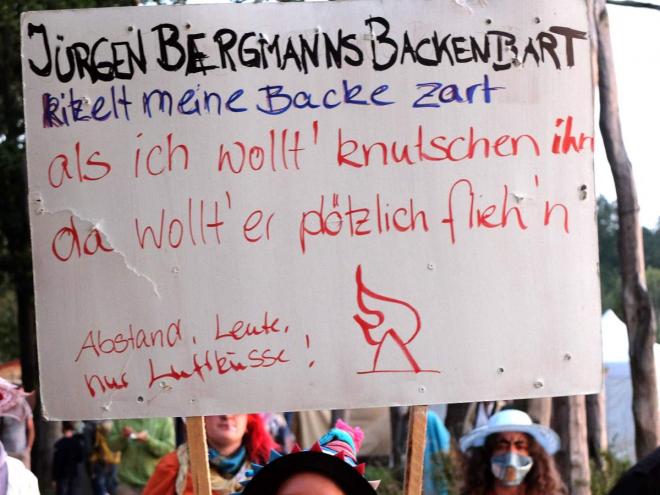 JÜRGEN BERGMANNS BACKENBART
kitzelt meine Backe zart
als ich wollt' knutschen ihn
da wollt' er plötzlich flieh'n
Abstand, Leute,
nur Luftküsse!